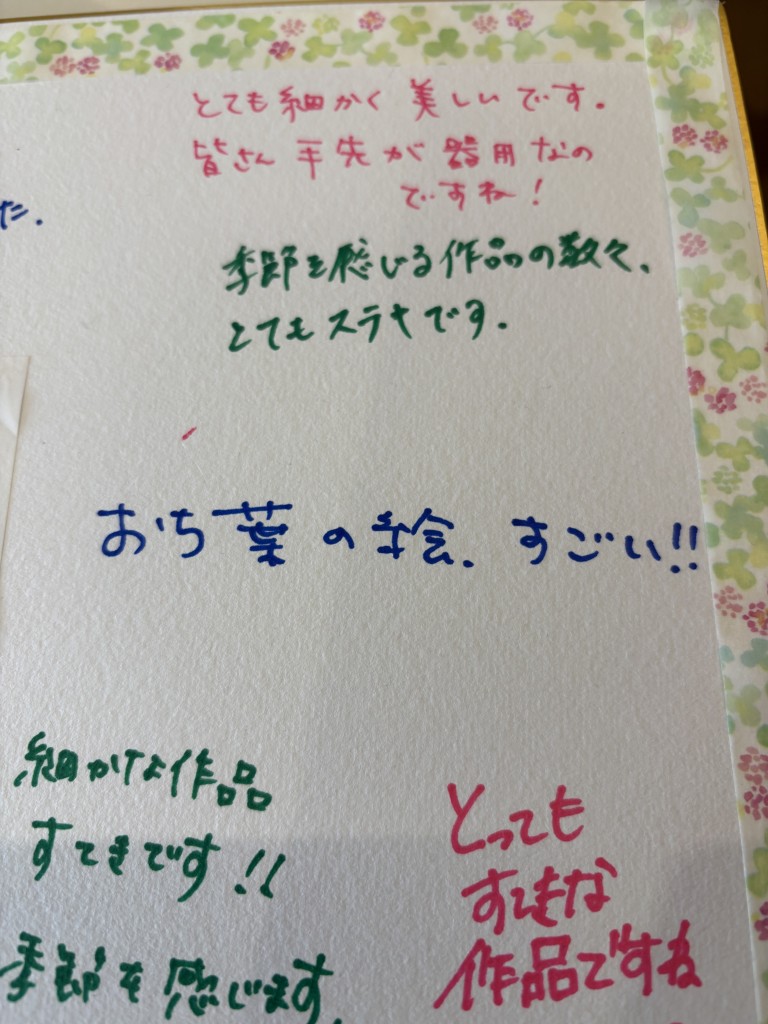 とても細かく美しいです。
皆さん手先が器用なの
ですね!
た.
季節を感じる作品の数々、
とてもステキです.
おち葉の絵.すごい!!
細かな作品
すてきです!!
季節を感じます.
とっても
すてきな
作品ですね